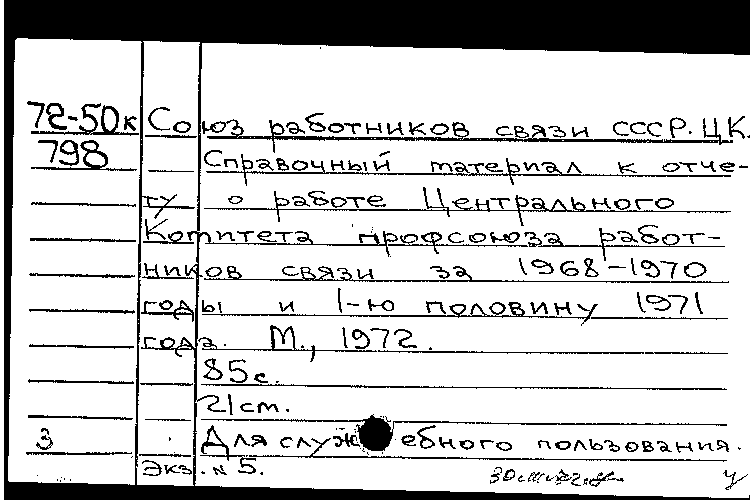 72-50к Союз работников связи СССР. ЦК.
798 Справочный материал к отче-
ту о работе Центрального
Комитета профсоюза работ-
ников связи за 1968-1970
годы и 1-ю половину 1971
года. М., 1972.
85с.
21см.
3 Для служебного пользования.
Экз. № 5.